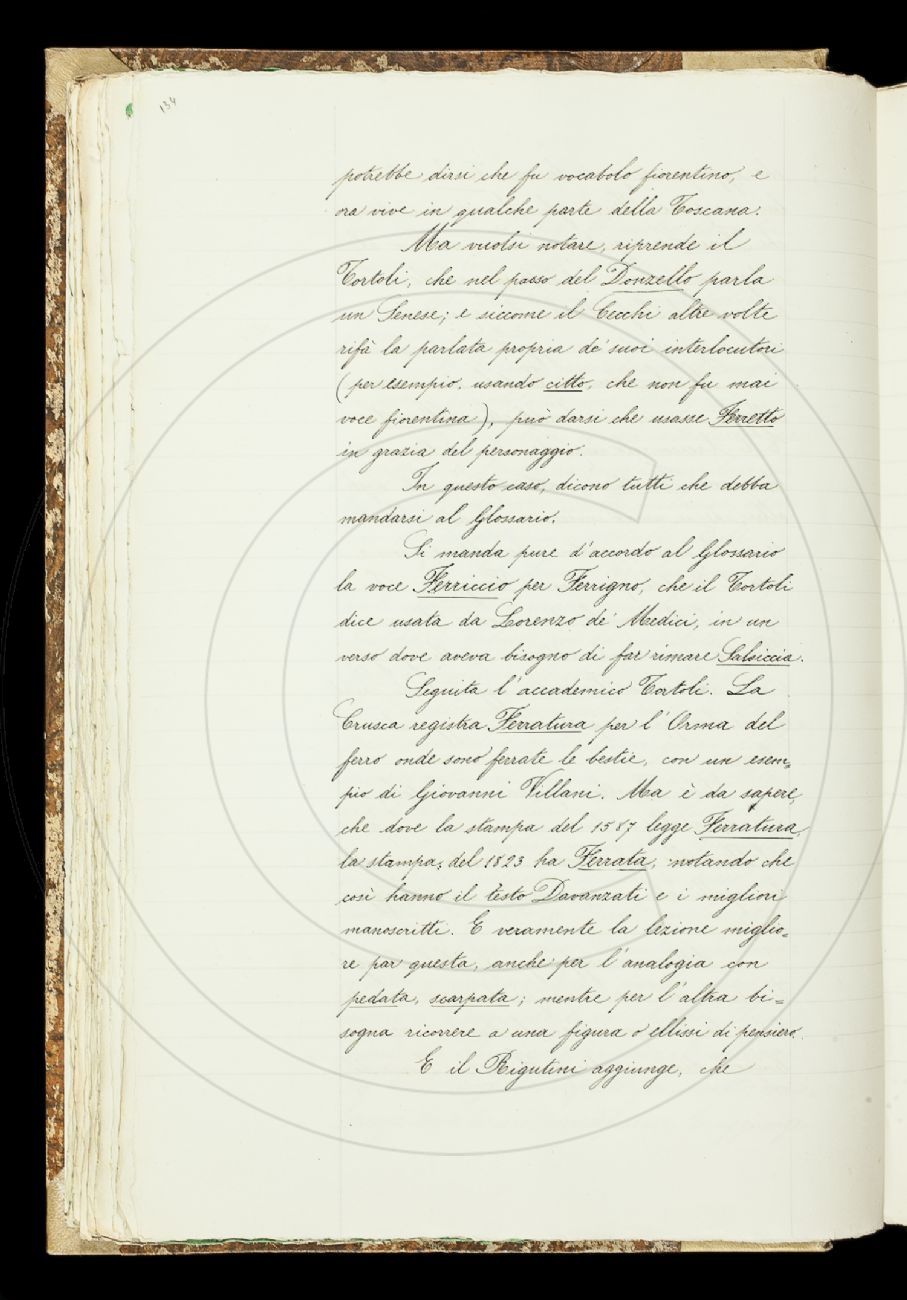 134
potrebbe dirsi che fu vocabolo fiorentino, e
ora vive in qualche parte della Toscana.
Ma vuolsi notare, riprende il
Tortoli, che nel passo del Donzello parla
un Senese; e siccome il Cecchi altre volte
rifà la parlata propria de' suoi interlocutori
(per esempio, usando citto, che non fu mai
voce fiorentina), può darsi che usasse Ferretto
in grazia del personaggio.
In questo caso, dicono tutti che debba
mandarsi al Glossario.
Si manda pure d'accordo al Glossario
la voce Ferriccio per Ferrigno, che il Tortoli
dice usata da Lorenzo de' Medici, in un
verso dove aveva bisogno di far rimare Salsiccia.
Seguita l'accademico Tortoli. La
Crusca registra Ferratura per l'Orma del
ferro onde sono ferrate le bestie, con un esem=
pio di Giovanni Villani. Ma è da sapere,
che dove la stampa del 1587 legge Ferratura,
la stampa del 1823 ha Ferrata, notando che
così hanno il testo Davanzati e i migliori
manoscritti. E veramente la lezione miglio=
re par questa, anche per l'analogia con
pedata, scarpata; mentre per l'altra bi=
sogna ricorrere a una figura o ellissi di pensiero.
E il Rigutini aggiunge, che